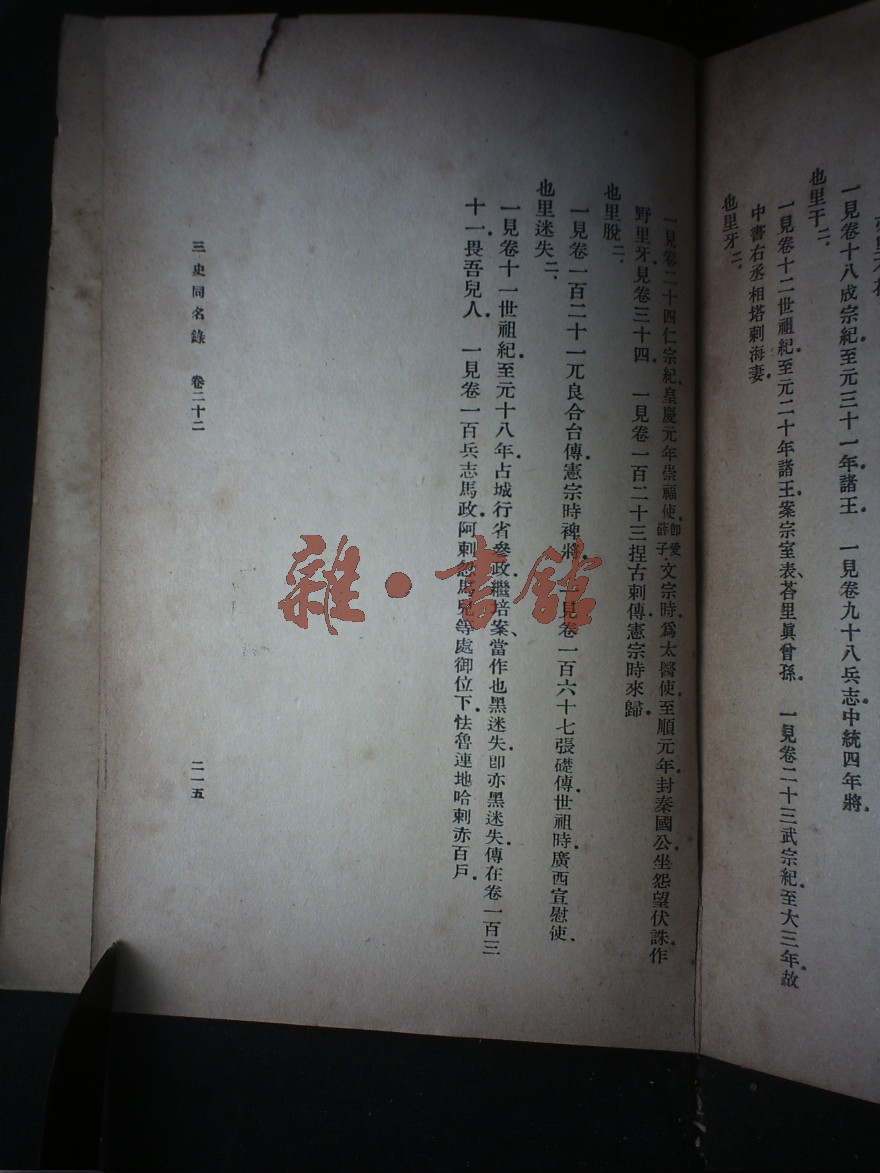 一見卷十八成宗紀至元三十一年諸王 一見卷九十八兵志中統四年將
也里干二
一見卷十二世祖紀至元二十年諸王案宗室表荅里眞曾孫 一見卷二十三武宗紀至大三年故
中書右丞相塔剌海妻
也里牙二
一見卷二十四仁宗紀皇慶元年崇福使卽愛薛子文宗時爲太醫使至順元年封秦國公坐怨望伏誅作
野里牙見卷三十四 一見卷一百二十三捏古剌傳憲宗時來歸
也里脫二
一見卷一百二十一兀良合台傳憲宗時裨將 一見卷一百六十七張礎傳世祖時廣西宣慰使
也里迷失二
一見卷十一世祖紀至元十八年占城行省參政繼培案當作也黑迷失卽亦黑迷失傳在卷一百三
十一畏吾兒人 一見卷一百兵志馬政阿剌忽馬兒等處御位下怯魯連地哈剌赤百戶
三史同名錄 卷二十二
二一五
雜·書館